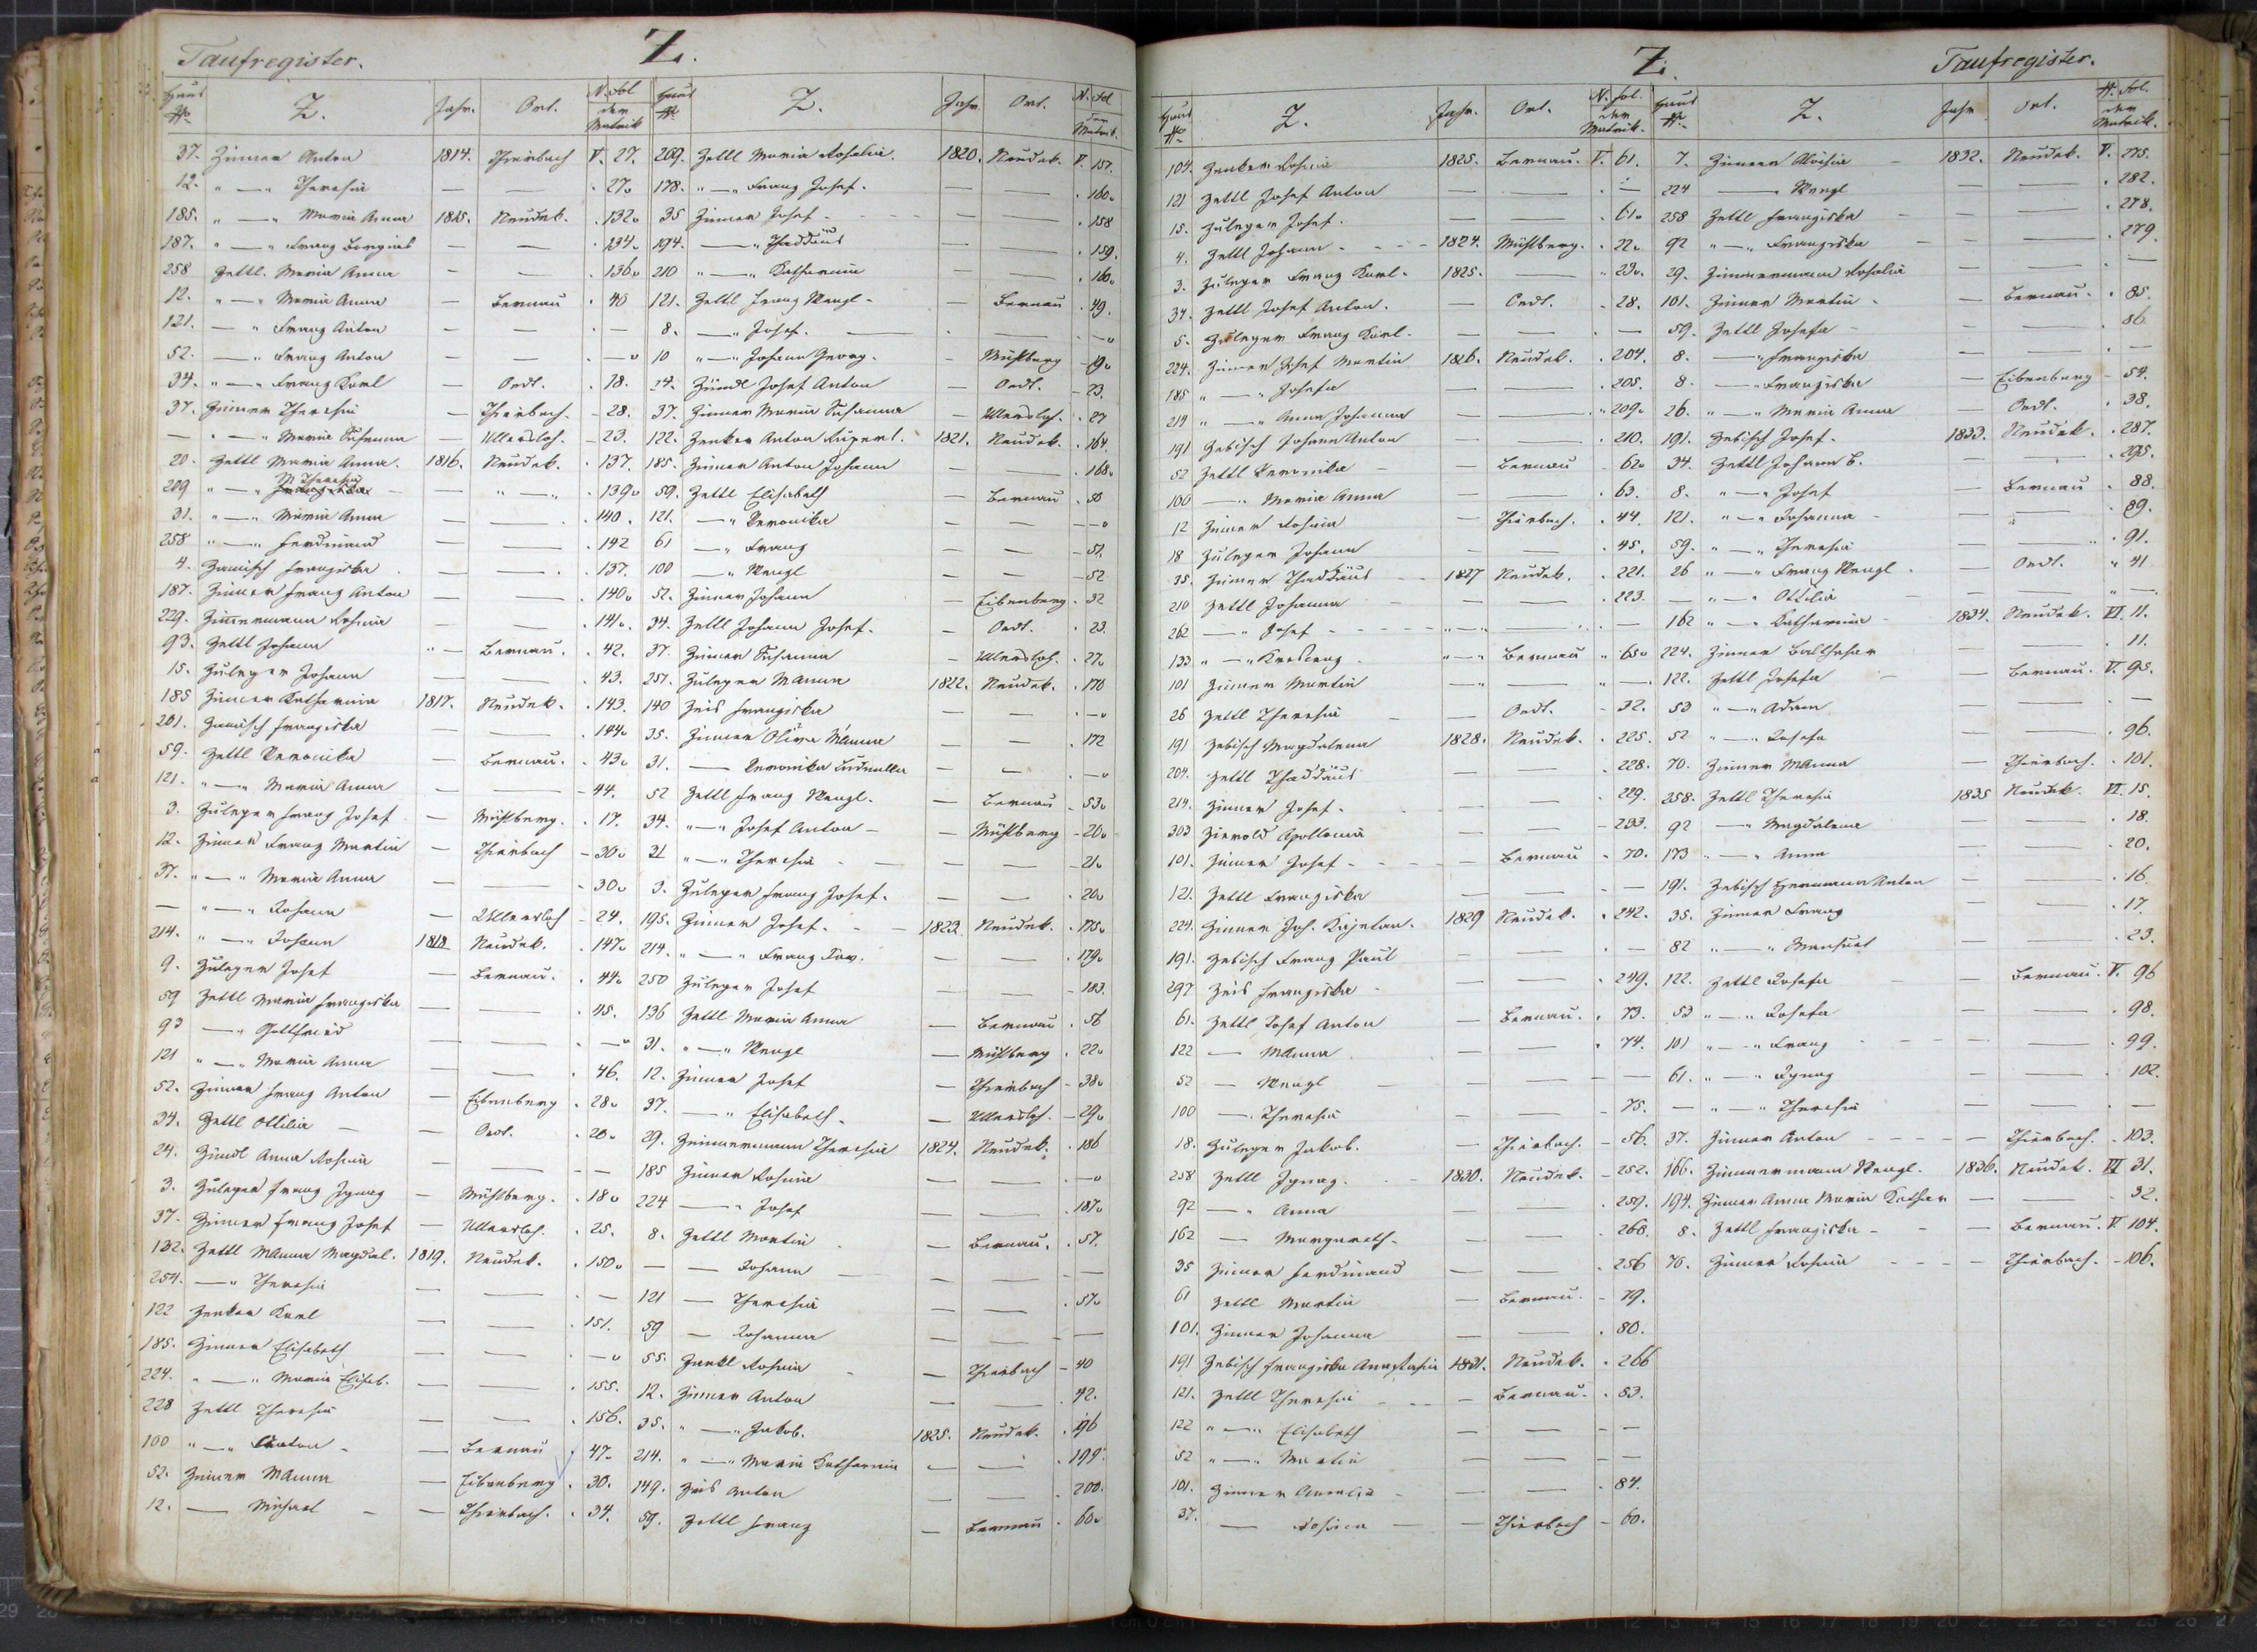 Taufregister. Z.
Haus No Z. Jahr. Ort. N. Fol der Matrik
37. Zinner Anton 1814. Thierbach V. 27.
12. " — " Theresia — — . 27.
185. " — " Maria Anna 1815. Neudek. . 132.
187. " — " Franz — — . 134.
258 Zettl. Maria Anna — — . 136.
12. " — " Maria Anna — Bernau . 40
121. — " Franz Anton — — . —
52. — " Franz Anton — — . —
34. " — " Franz Karl — Oedt. . 18.
37. Zinner Theresia — Thierbach. - 28.
— " — " Maria Susanna — Ullersloh. - 23.
20. Zettl Maria Anna. 1816. Neudek. . 137.
209 " — " M Theresia — " — " . 139.
31. " — " Maria Anna — — . 140.
258 " — " Ferdinand — — . 142
4. Franziska — — . 137.
187. Zinner Franz Anton — — . 140.
229. Zimmermann Rosina — — . 141.
93. Zettl Johann " — Bernau. . 42.
15. Zuleger Johann — — . 43.
185 Zinner Katharina 1817. Neudek. . 143.
201. Franziska — — . 144.
59. Zettl Veronika — Bernau. . 43.
121. " — " Maria Anna — — - 44.
3. Zuleger Franz Josef — Mühlberg. . 17.
12. Zinner Franz Martin — Thierbach - 30.
37. " — " Maria Anna — — - 30.
— " — " Johann — Ullersloh - 24.
214. " — " Johann 1818 Neudek. . 147.
9. Zuleger Josef — Bernau. . 44.
59 Zettl Maria Franziska — — . 45.
93 — " Gottfried — — . —
121 " — " Maria Anna — — . 46.
52. Zinner Franz Anton — Eibenberg . 28.
34. Zettl Ottilia — — Oedt. . 20.
24. Zündl Anna Rosina — — —
3. Zuleger Franz Ignaz — Mühlberg. . 18.
37. Zinner Franz Josef — Ullersloh. . 25.
132. Zettl MAnna Magdal. 1819. Neudek. . 150.
254. — " Theresia — — . —
122 Zenker Karl — — . 151.
185. Zinner Elisabeth — — . —
224. " — " Maria Elisab. — — . 155.
228 Zettl Theresia — — . 156.
100 " — " Anton - — Bernau 47.
52. Zinner MAnna — Eibenberg . 30.
12. — Michael — Thierbach. . 34.
Haus No Z. Jahr Ort. N. Fol der Matrik.
209. Zettl Maria Rosalia. 1820. Neudek. V. 157.
178. " — " Franz Josef. — — . 160.
35 Zinner Josef - — — . 158
194. — " Thaddäus — — . 159.
210 " — " Katharina — — . 160.
121. Zettl Franz Wenzl - — Bernau . 49.
8. — " Josef. — — - —
10 " — " Johann Georg. - Mühlberg - 19.
24. Zündl Josef Anton — Oedt. - 23.
37. Zinner Maria Susanna — Ullersloh. . 27
122. Zenker Anton Rupert. 1821. Neudek. . 164.
185. Zinner Anton Johann — — . 168.
59. Zettl Elisabeth — Bernau . 50
121. — " Veronika — — - —
61 — " Franz — — - 51.
100 — " Wenzl — — - 52
52. Zinner Johann — Eibenberg . 32
34. Zettl Johann Josef. - Oedt. . 23.
37. Zinner Susanna — Ullersloh. . 27.
257. Zuleger MAnna 1822. Neudek. . 170
140 Zeis Franziska — — . —
35. Zinner Oliva MAnna — — . 172
31. — Veronika Ludmilla — — . —
52 Zettl Franz Wenzl. — Bernau - 53.
34. " — " Josef Anton - — Mühlberg - 20.
31 " — " Theresia - — — - 21.
3. Zuleger Franz Josef. — — . 20.
195. Zinner Josef. - 1823. Neudek. . 175.
214. " — " Franz Xav. — — . 179.
250 Zuleger Josef — — - 183.
136 Zettl Maria Anna — Bernau . 56
31. " — " Wenzl — Mühlberg . 22.
12. Zinner Josef — Thierbach - 38.
37. — " Elisabeth. — Ullersloh. - 29.
29. Zimmermann Theresia 1824. Neudek. . 186
185 Zinner Rosina — — . —
224 — " Josef — — . 187.
8. Zettl Martin - — Bernau. . 57.
— — Johann — — — —
121 — Theresia — — . 57.
59 — Johanna — — - —
55. Rosina — Thierbach - 40
12. Zinner Anton — — . 42.
35. " — " Jakob. 1825. Neudek. . 196
214. " — " Maria Katharina — — . 199.
149. Zeis Anton — — . 200.
59. Zettl Franz — Bernau . 60.
Z. Taufregister.
Haus No Z. Jahr. Ort. N. Fol. der Matrik.
104. Zenker Rosina 1825. Bernau. V. 61.
121 Zettl Josef Anton — — . —
15. Zuleger Josef. — — . 61.
4. Zettl Johann - - - 1824. Mühlberg. . 22.
3. Zuleger Franz Karl. 1825. — " 23.
34. Zettl Josef Anton. — Oedt. . 28.
5. Zuleger Franz Karl. — — . —
224. Zinner Josef Martin 1826. Neudek. . 204.
185 " — " Josefa — — . 205.
214 " — " Anna Johanna — — . 209.
191 Zebisch Johann Anton — — . 210.
52 Zettl Veronika — — Bernau . 62.
100 — " Maria Anna — — . 63.
12 Zinner Rosina — Thierbach. . 44.
18 Zuleger Johann — — . 45.
35. Zinner Thaddäus - - 1827 Neudek. . 221.
210 Zettl Johanna — — — . 223.
262 — " Josef - - - " — " — . —
133 " — " Kreszenz " — " Bernau " 65.
101 Zinner Martin — " — " —
26 Zettl Theresia — — Oedt. - 32.
191 Zebisch Magdalena 1828. Neudek. . 225.
204. Zettl Thaddäus — . 228.
214. Zinner Josef. — — . 229.
303 Zierold Apollonia — — - 233.
101. Zinner Josef - - - Bernau . 70.
121. Zettl Franziska — — . —
224. Zinner Joh. Kajetan. 1829 Neudek. . 242.
191. Zebisch Franz Paul — — . —
297 Zeis Franziska - — — . 249.
61. Zettl Josef Anton — Bernau. . 73.
122 — MAnna — — . 74.
52 — Wenzl — — — —
100 —. Theresia — — - 75.
18. Zuleger Jakob. — Thierbach. - 56.
258 Zettl Ignaz. - 1830. Neudek. - 252.
92 — " Anna — — . 259.
162 — Margareth. — — . 268.
35 Zinner Ferdinand — — . 256
61 Zettl Martin — Bernau. - 79.
101. Zinner Johanna — — . 80.
191 Zebisch Franziska Anastasia 1831. Neudek. . 266
121. Zettl Theresia - - - Bernau. . 83.
122 " — " Elisabeth — — - —
52 " — " Martin — — - —
101. Zinner Amalia - — — . 84.
37. — Rosina — — Thierbach - 60.
Haus No Z. Jahr Ort. N. Fol. der Matrik.
7. Zinner Aloisia - 1832. Neudek. V. 275.
224 — Wenzl — — . 282.
258 Zettl Franziska - — — . 278.
92 " — " Franziska — — . 279.
29. Zimmermann Rosalia — — . —
101. Zinner Martin - — Bernau. . 85.
59. Zettl Josefa - — — . 86
8. — " Franziska — — . —
8. — " Franziska — Eibenberg - 54.
26. " — " Maria Anna — Oedt. . 38.
191. Zebisch Josef. 1833. Neudek. . 287.
34. Zettl Johann B. — — . 295.
8. " — " Josef — Bernau . 88.
121. " — " Johanna - — — . 89.
59. " — " Theresia — — . 91.
26 " — " Franz Wenzl. — Oedt. " 41
— " — " Ottilia — — " —
162 " — " Katharina - 1834. Neudek. VI. 11.
224. Zinner Balthasar — — . 11.
122. Zettl Josefa - — Bernau. V. 95.
53 " — " Adam — — . —
52 " — " Josefa — — . 96.
70. Zinner MAnna — Thierbach. . 101.
258. Zettl Theresia 1835 Neudek. VI. 15.
92 — " Magdalena — — . 18.
173 " — " Anna — — . 20.
191. Zebisch Hermann Anton — — . 16
35. Zinner Franz — — . 17.
82 " — " Mansuet — — . 23.
122. Zettl Josefa - — Bernau. V. 96
53 " — " Josefa — — . 98.
101 " — " Franz - - — — . 99.
61. " — " Ignaz — — . 102.
— " — " Theresia — — . —
37. Zinner Anton - - - — Thierbach. . 103.
166. Zimmermann Wenzl. 1836. Neudek. VI 31.
194. Zinner Anna Maria Kathar — — - 32.
8. Zettl Franziska - - — Bernau. V. 104.
76. Zinner Rosina - - — Thierbach. - 106.